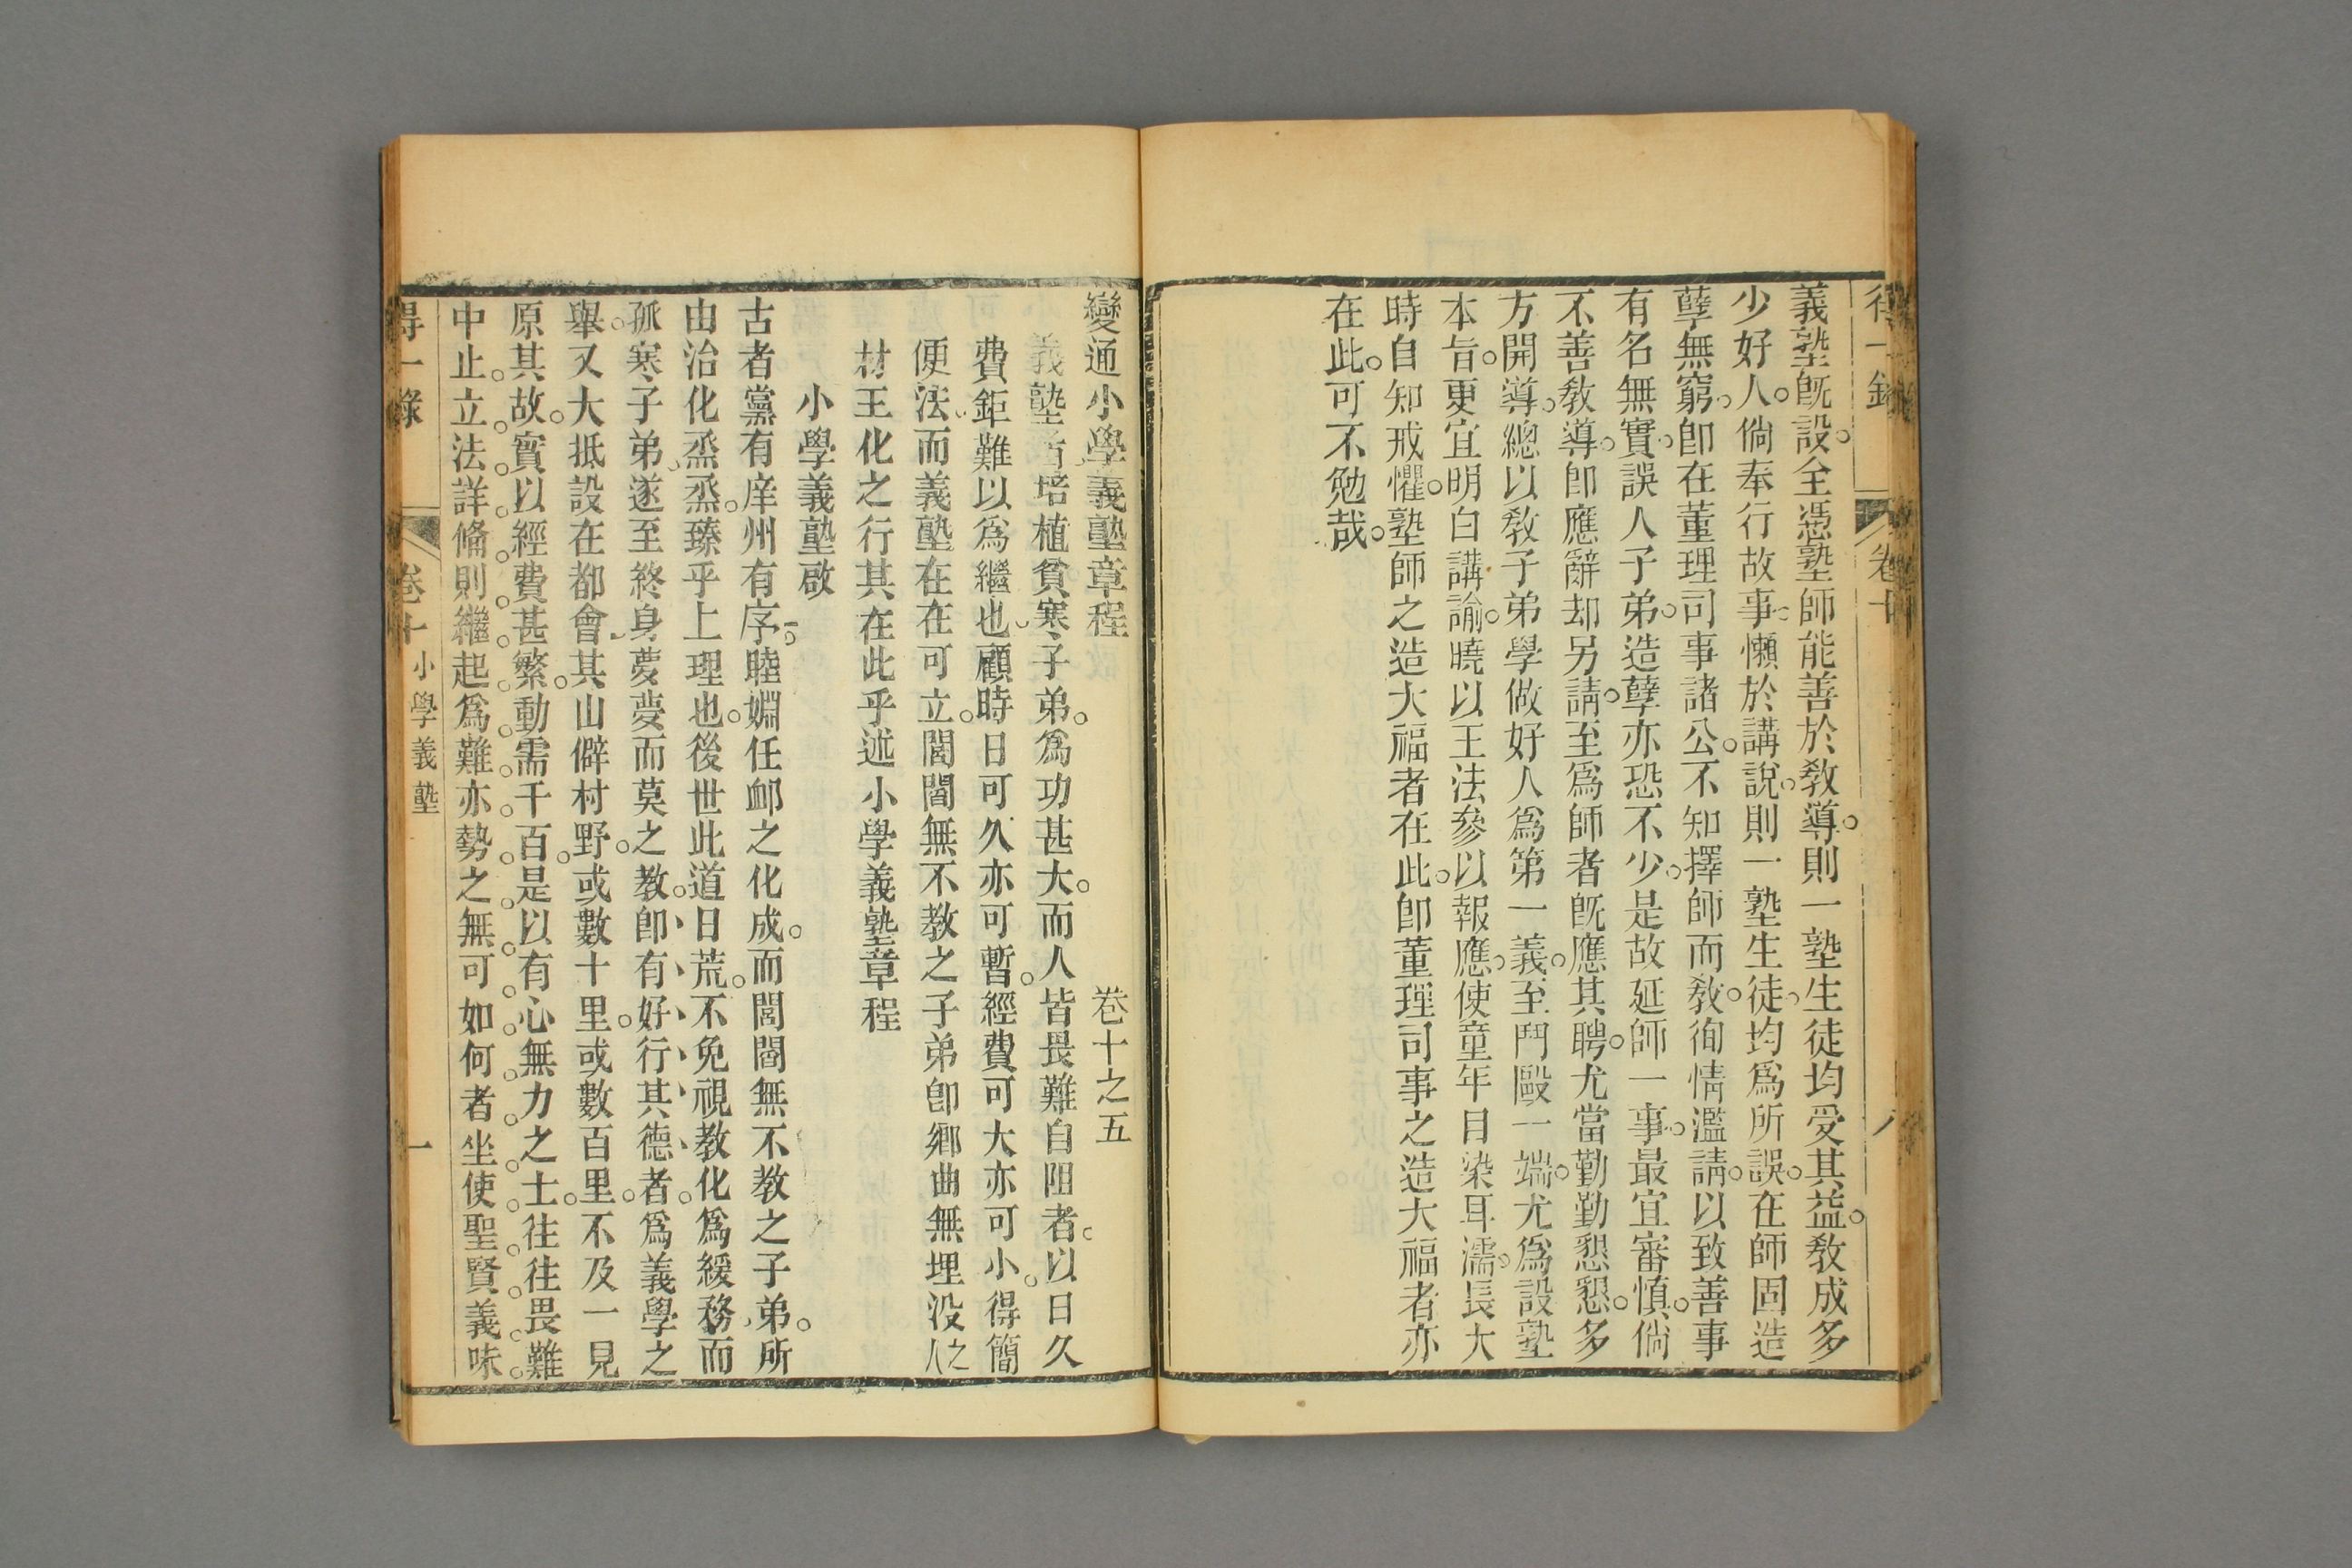 得一錄 卷十 八
義塾旣設全憑塾師能善於敎導則一塾生徒均受其益敎成多
少好人倘奉行故事懶於講說則一塾生徒均爲所誤在師固造
孽無窮卽在董理司事諸公不知擇師而敎徇情濫請以致善事
有名無實誤人子弟造孽亦恐不少是故延師一事最宜審愼倘
不善敎導卽應辭却另請至爲師者旣應其聘尤當勤勤懇懇多
方開導總以敎子弟學做好人爲第一義至鬥毆一端尤爲設塾
本旨更宜明白講諭曉以王法參以報應使童年目染耳濡長大
時自知戒懼塾師之造大福者在此卽董理司事之造大福者亦
在此可不勉哉
變通小學義塾章程 卷十之五
義塾培植貧寒子弟爲功甚大而人皆畏難自阻者以日久
費鉅難以爲繼也顧時日可久亦可暫經費可大亦可小得簡
便法而義塾在在可立閭閻無不教之子弟卽鄉曲無埋没之人
材王化之行其在此乎述小學義塾章程
小學義塾啟
古者黨有庠州有序睦婣任䘏之化成而閭閻無不教之子弟所
由治化烝烝臻乎上理也後世此道日荒不免視教化爲緩務而
孤寒子弟遂至終身夢夢而莫之教卽有好行其德者爲義學之
舉又大抵設在都會其山僻村野或數十里或數百里不及一見
原其故實以經費甚繁動需千百是以有心無力之士往往畏難
中止立法詳備則繼起爲難亦勢之無可如何者坐使聖賢義味
得一錄 卷十 小學義塾 一